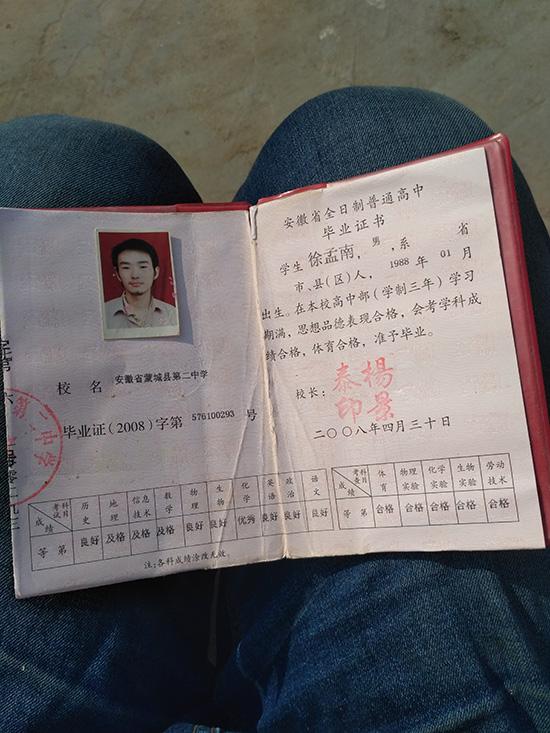 校 名 安徽省蒙城县第二中学
毕业证(2008)字第576100293号
考试科目 成绩 历史 地理 信息技术 数学 物理 生物 化学 英语 政治 语文
等 第 良好 及格 及格 及格 良好 良好 优秀 良好 良好 良好
注:各科成绩涂改无效。
安徽省全日制普通高中
毕业证书
学生徐孟南,男,系 省
市、县(区)人, 1988 年 01 月
出生。在本校高中部(学制三年)学习
期满,思想品德表现合格,会考学科成
绩合格,体育合格,准予毕业。
校长: 杨景泰印
二〇〇八年四月三十日
考查科目 成绩 体育 物理实验 化学实验 生物实验 劳动技术
等 第 合格 合格 合格 合格 合格